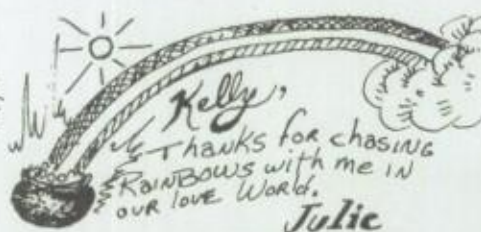 Kelly,
Thanks for chasing
Rainbows with me in
our love World.
Julie